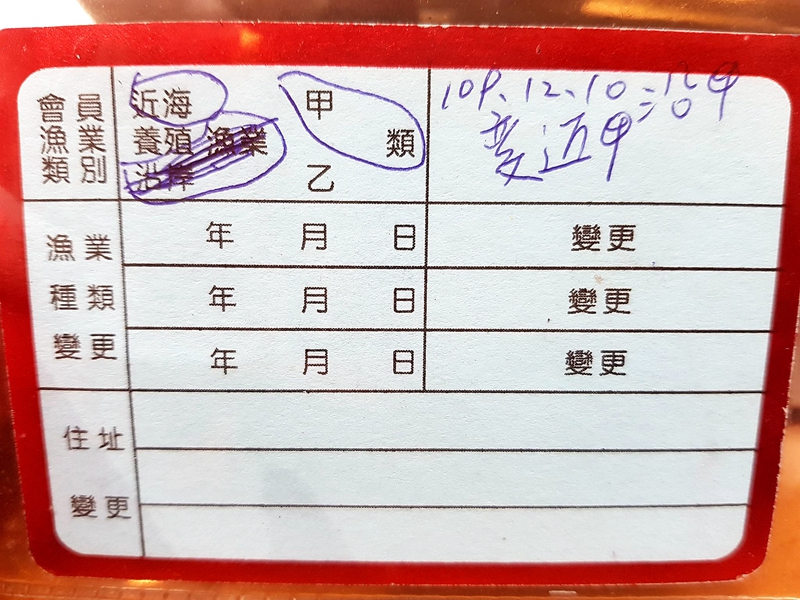 會員 近海 甲 109.12.10=沿甲
漁業 養殖 漁業 類 變近甲
類別 沿岸 乙
漁業 年 月 日 變更
種類 年 月 日 變更
變更 年 月 日 變更
住址
變更